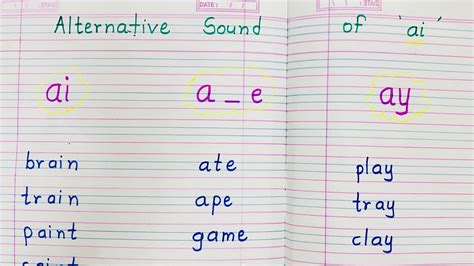 DATE: / /
Alternative Sound of 'ai'
ai a_e ay
brain ate play
train ape tray
paint game clay